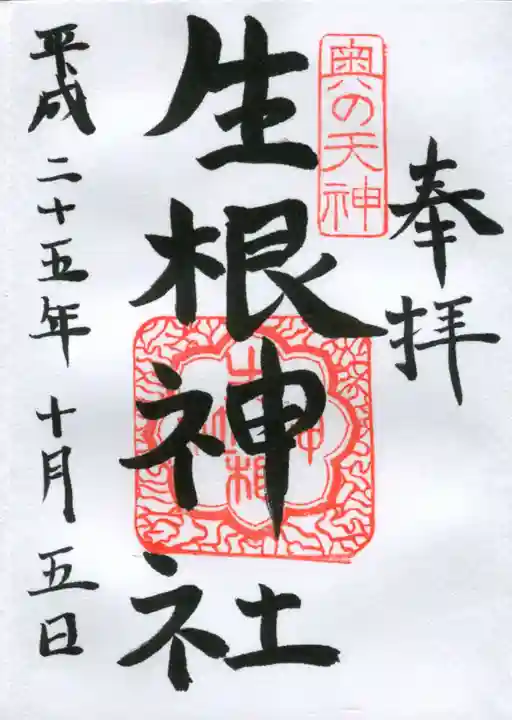 奉拝
奥の天神
生根神社
平成二十五年十月五日